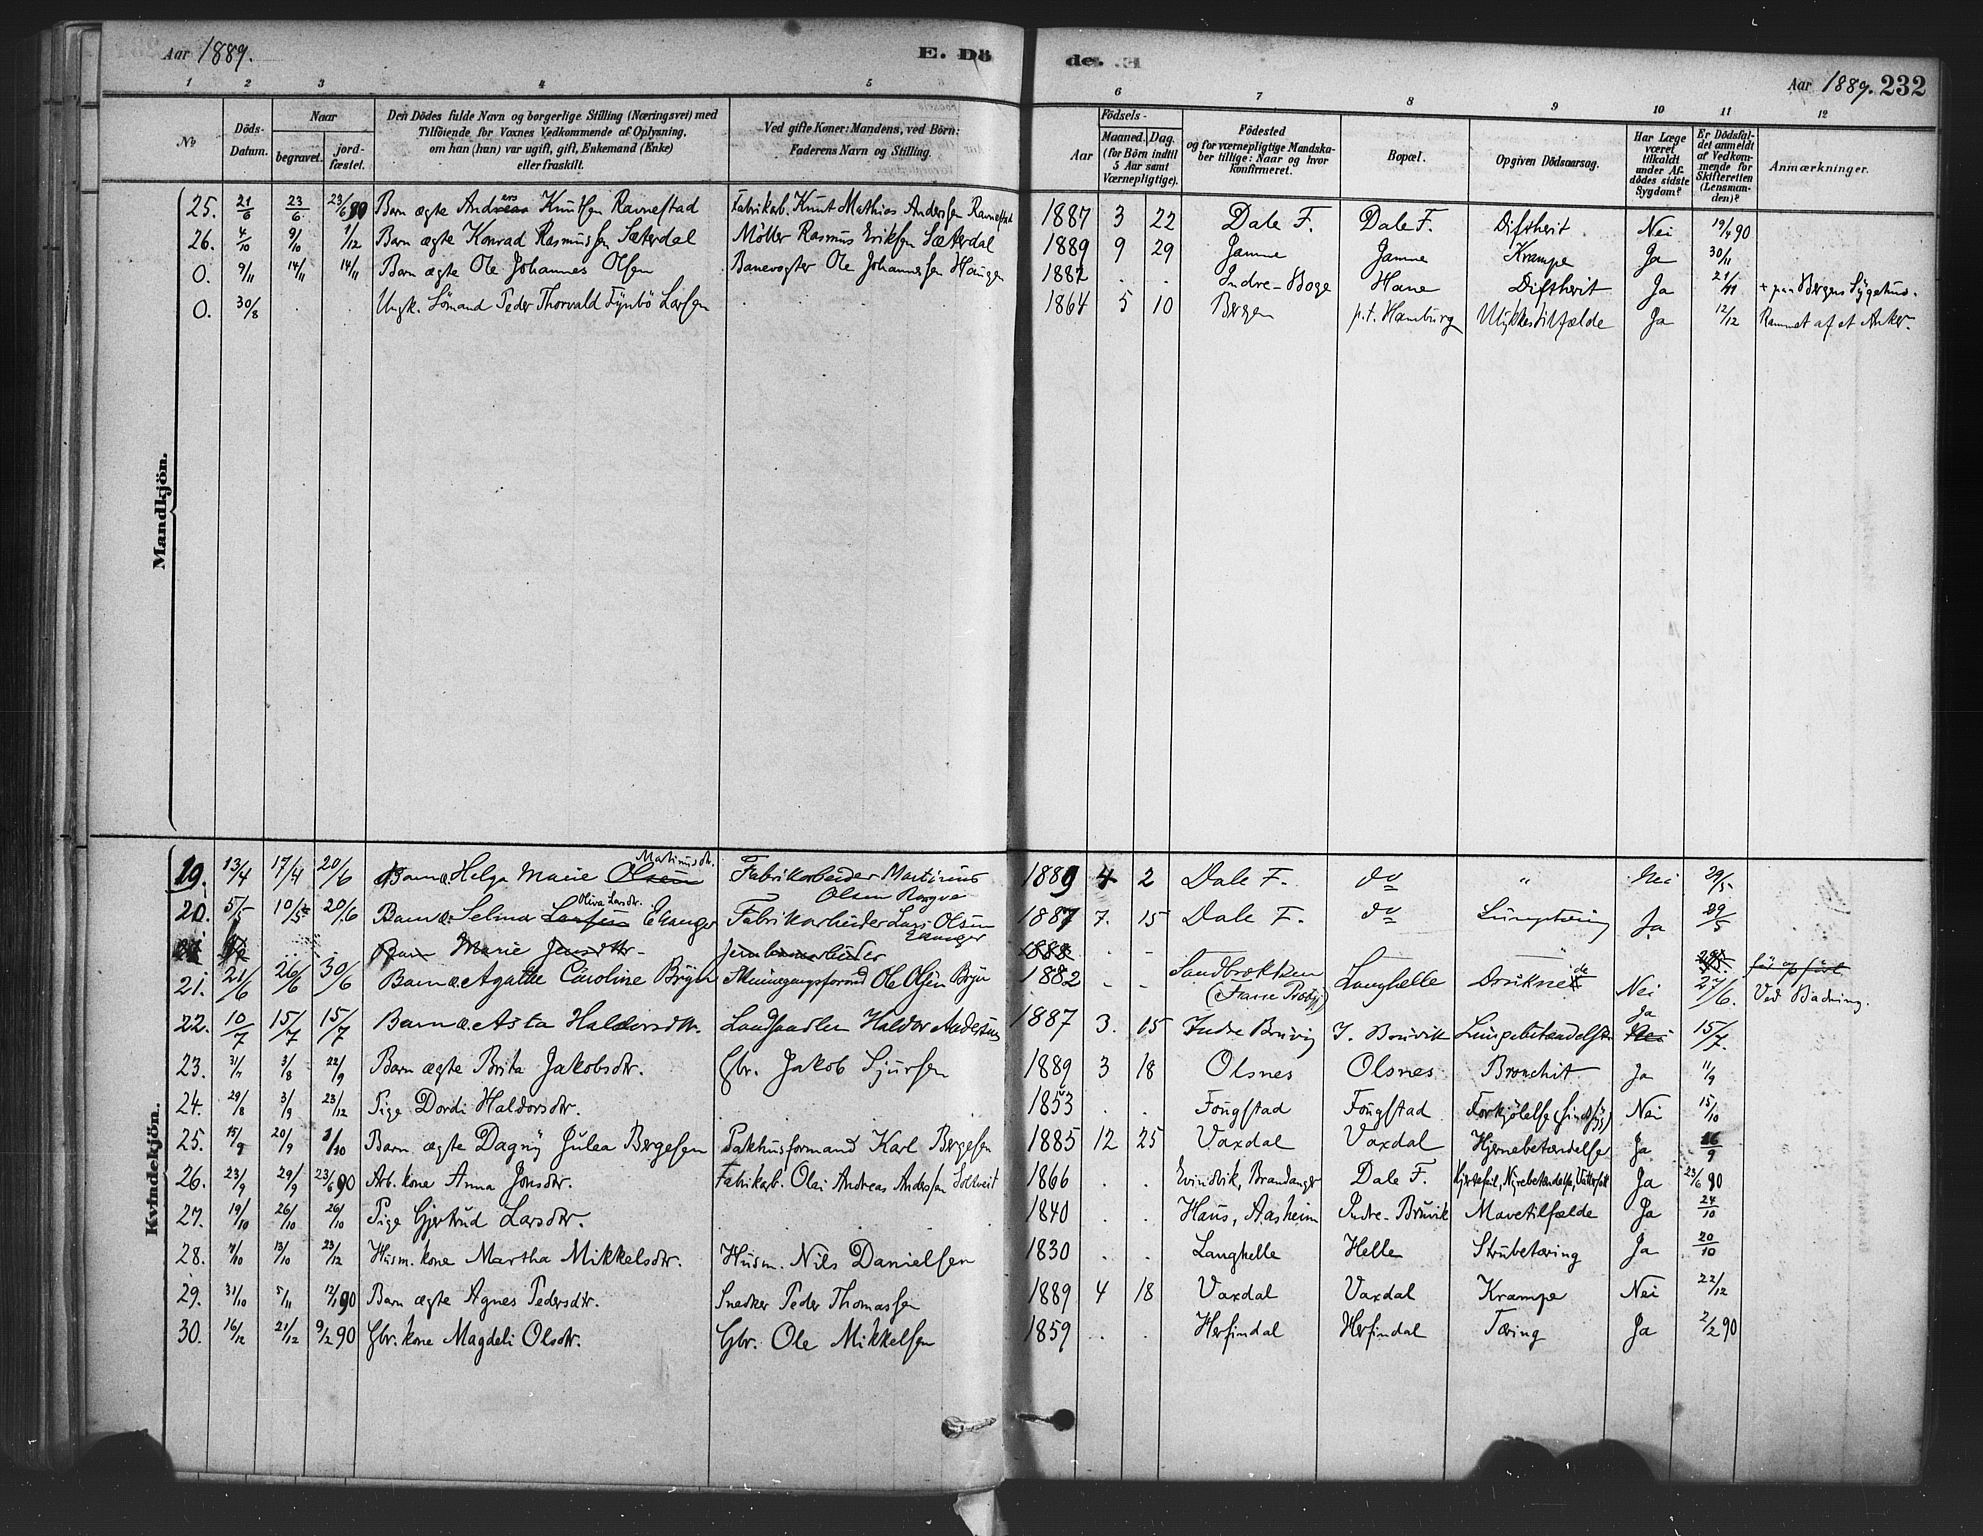 Aar 1889.
E. Dö
de.
Aar 1889. 232
1 2 3 4 5
6 7 8 9 10 11 12
No
Döds-
Datum.
Naar
begravet.
jord-
fæstet.
Den Dödes fulde Navn og borgerlige Stilling (Næringsvei) med
Tilföiende for Voxnes Vedkommende af Oplysning,
om han (hun) var ugift, gift, Enkemand (Enke)
eller fraskilt.
Ved gifte Koner: Mandens, ved Börn:
Faderens Navn og Stilling.
Födsels-
Aar
Maaned. Dag.
(for Börn indtil
5 Aar samt
Værnepligtige).
Födested
og for værnepligtige Mandska-
ber tillige: Naar og hvor
konfirmeret.
Bopæl.
Opgiven Dödsaarsag.
Har Læge
været
tilkaldt
under Af-
dödes sidste
Sygdom?
Er Dödsfal-
det anmeldt
af Vedkom-
mende for
Skifteretten
(Lensman-
den)?
Anmærkninger.
Mandkjön.
25. 21/6 23/6 23/6 90 Barn ægte Andreas ers Knutsen Ravnestad Fabrikarb. Knut Mathias Anderssen Ravnestad 1887 3 22 Dale F. Dale F. Diftherit Nei 19/4 90
26. 4/10 9/10 1/12 Barn ægte Konrad Rasmussen Sæterdal Møller Rasmus Eriksen Sæterdal 1889 9 29 Jamne Jamne Krampe Ja 30/11
0. 9/11 14/11 14/11 Barn ægte Ole Johannes Olsen Banevogter Ole Johannessen Haugen 1882 . . Indre-Boge Hane Diftherit Ja 21/11 + paa Bergens Sygehus.
0. 30/8 . . Ungk. Sömand Peder Thorvald Fynbö Larsen . 1864 5 10 Bergen p.t. Hamburg Ulykkestilfælde Ja 12/12 Rammet af et Anker.
Kvindekjön.
19. 13/4 17/4 20/6 Barn æ. Helga Marie Olsen Martinusdtr. Fabrikarbeider Martinius Olsen 1889 4 2 Dale F. do " Nei 29/5
20. 5/5 10/5 20/6 Barn æ. Selma Larsen Oliva Larsdtr. Fabrikarbeider Lars Olsen 1887 7. 15 Dale F. do Ja 29/5
Barn Marie Jensdtr. 1888 . -
21. 21/6 26/6 30/6 Barn æ. Agathe Caroline Brÿn Ole Olsen Brÿn 1882 - - Sandbrækken Langhelle Druknede Nei 27/6. Ved Badning.
22. 10/7 15/7 15/7 Barn æ. Asta Haldorsdtr. Landhandler Haldor Andersen 1887 3. 15 Indre Bruvig I. Bruvik Lungebetændelse Nei Ja 15/7.
23. 31/7 3/8 22/9 Barn ægte Brita Jakobsdtr. Gbr. Jakob Sjursen 1889 3 18 Olsnes Olsnes Bronchit Ja 11/9
24. 29/8 3/9 23/12 Pige Dordi Haldorsdtr. . 1853 . . Fougstad Fougstad Forkjølelse Nei 15/10
25. 15/9 20/9 1/10 Barn ægte Dagny Julea Bergesen Pakhusformand Karl Bergesen 1885 12 25 Vaxdal Vaxdal Hjernebetændelse Ja 16/9
26. 23/9 29/9 23/6 90 Arb. kone Anna Jonsdtr. Fabrikarb. Olai Andreas Anderssen Soltveit 1866 . . Evindvik, Brandanger Dale F. Hjertefeil, Nyrebetændelse, Vattersot Ja 23/6 90
27. 19/10 26/10 26/10 Pige Gjertrud Larsdtr. . 1840 . . Haus, Aasheim Indre-Bruvik Mavetilfælde Ja 24/10
28. 7/10 13/10 23/12 Husm. kone Martha Mikkelsdtr. Husm. Nils Danielsen 1830 . . Langhelle Helle Strubetæring Ja 20/10
29. 31/10 5/11 12/1 90 Barn ægte Agnes Pedersdtr. Snedker Peder Thomassen 1889 4 18 Vaxdal Vaxdal Krampe Nei 22/12
30. 16/12 21/12 9/2 90 Gbr. kone Magdeli Olsdtr. Gbr. Ole Mikkelsen 1859 . . Herfindal Herfindal Tæring Ja 2/2 90